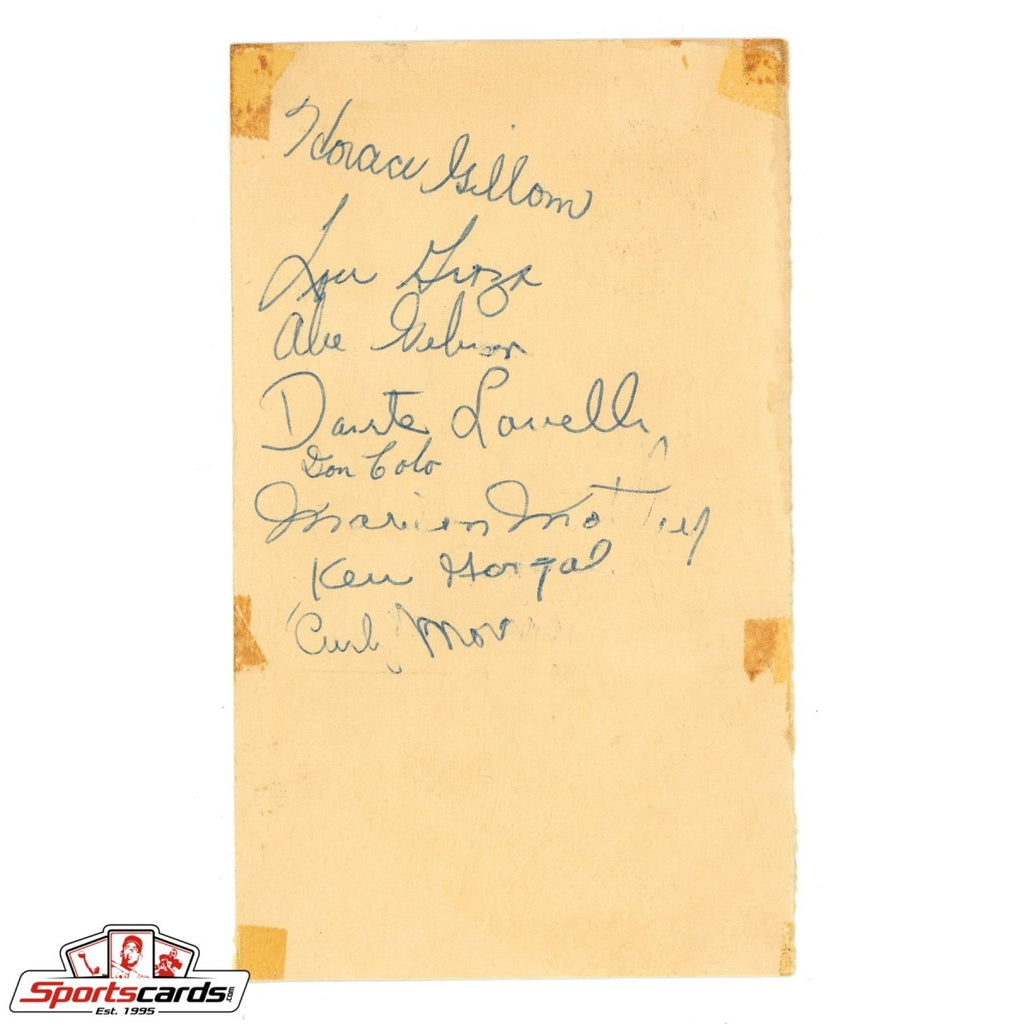 Horace Gillom
Lou Groza
Abe Gibron
Dante Lavelli
Don Colo
Marion Motley
Ken Gorgal
Curly
Sportscards.com
Est. 1995